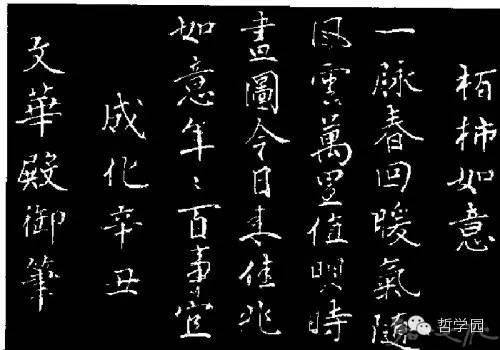 栢柿如意
一脉春回暖氣隨
風雲萬里值明時
畫圖今日来佳兆
如意年々百事宜
成化辛丑
文華殿御筆
哲学园